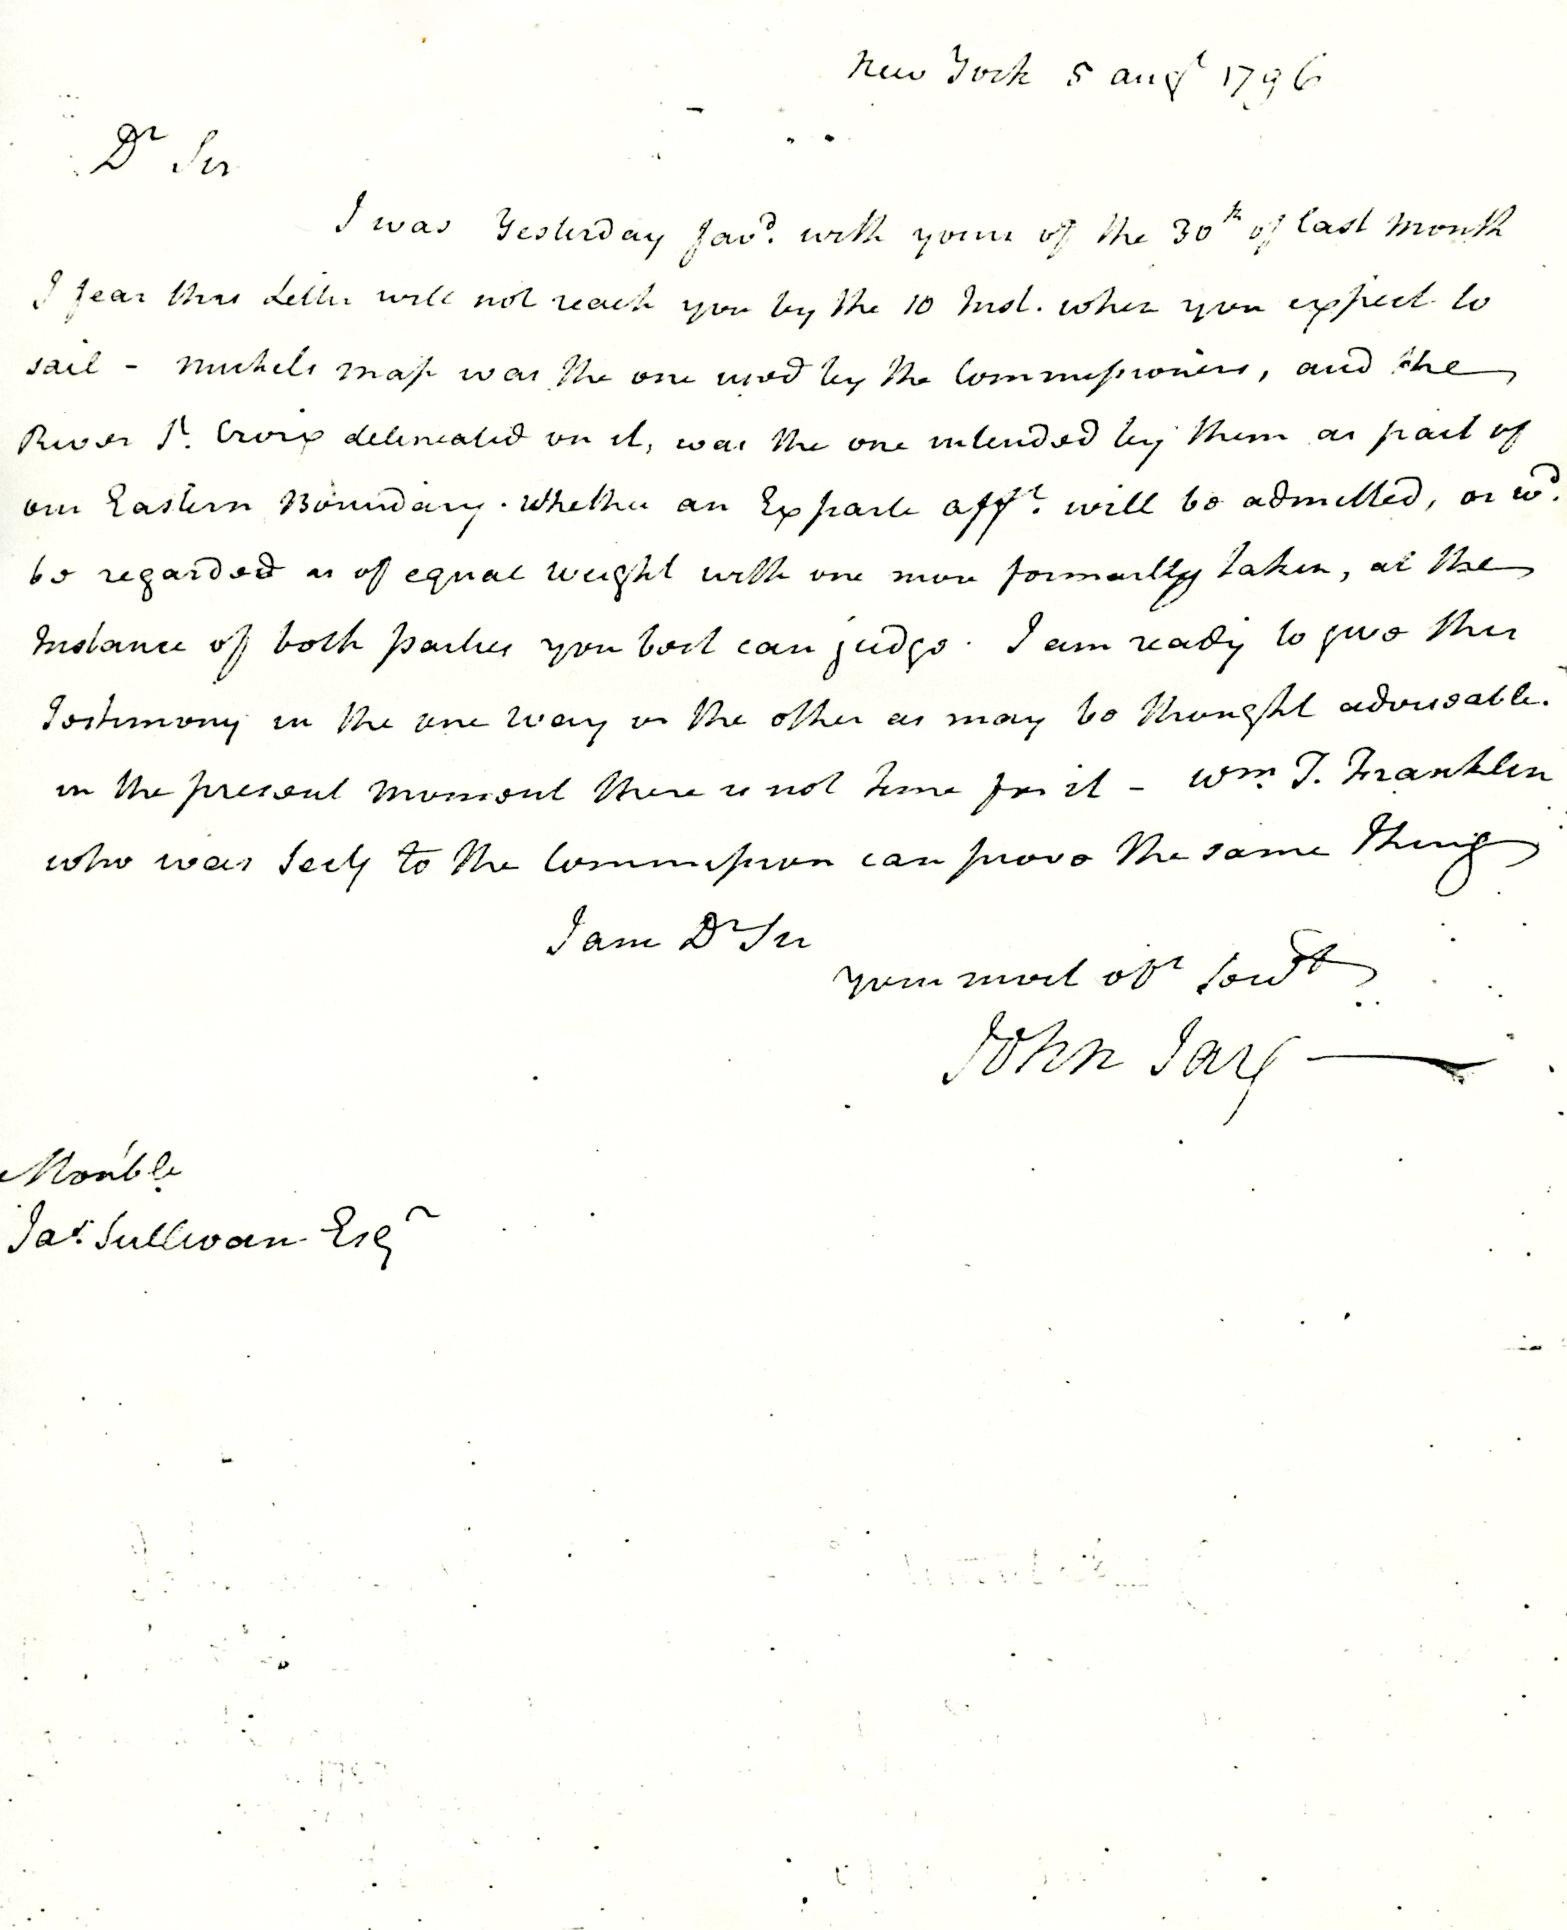 New York 5 augt 1796
Dr Sir
I was Yesterday favd. with yours of the 30th of last Month
I fear this Letter will not reach you by the 10 Inst. when you expect to
sail - Michels map was the one used by the Commissioners, and the
River St. Croix delineated on it, was the one intended by them as part of
our Eastern Boundary. Whether an Exparte afft. will be admitted, or wd.
be regarded as of equal weight with one more formally taken, at the
Instance of both parties you best can judge. I am ready to give this
Testimony in the one way or the other as may be thought adviseable.
in the present moment there is not time for it - Wm. T. Franklin
who was Secy to the Commission can prove the same Thing
I am Dr Sir
your most obt Servt
John Jay
Honble
Jas. Sullivan Esqr